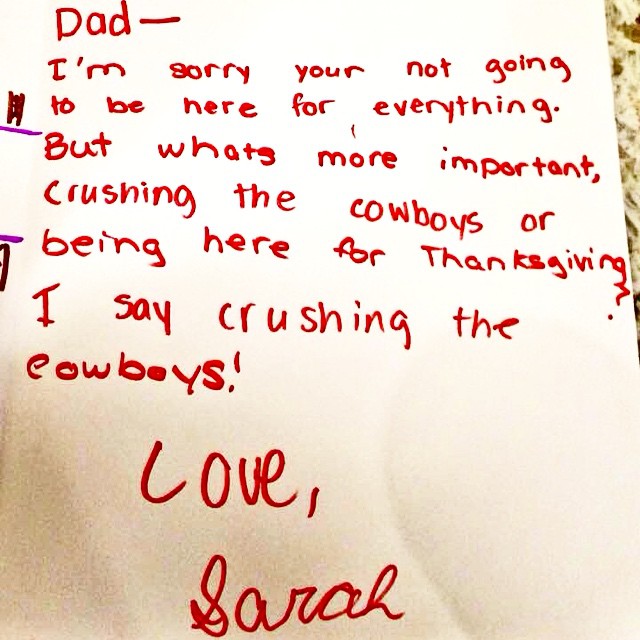 Dad—
I'm sorry your not going
to be here for everything.
But whats more important,
crushing the cowboys or
being here for Thanksgiving?
I say crushing the
cowboys!
Love,
Sarah